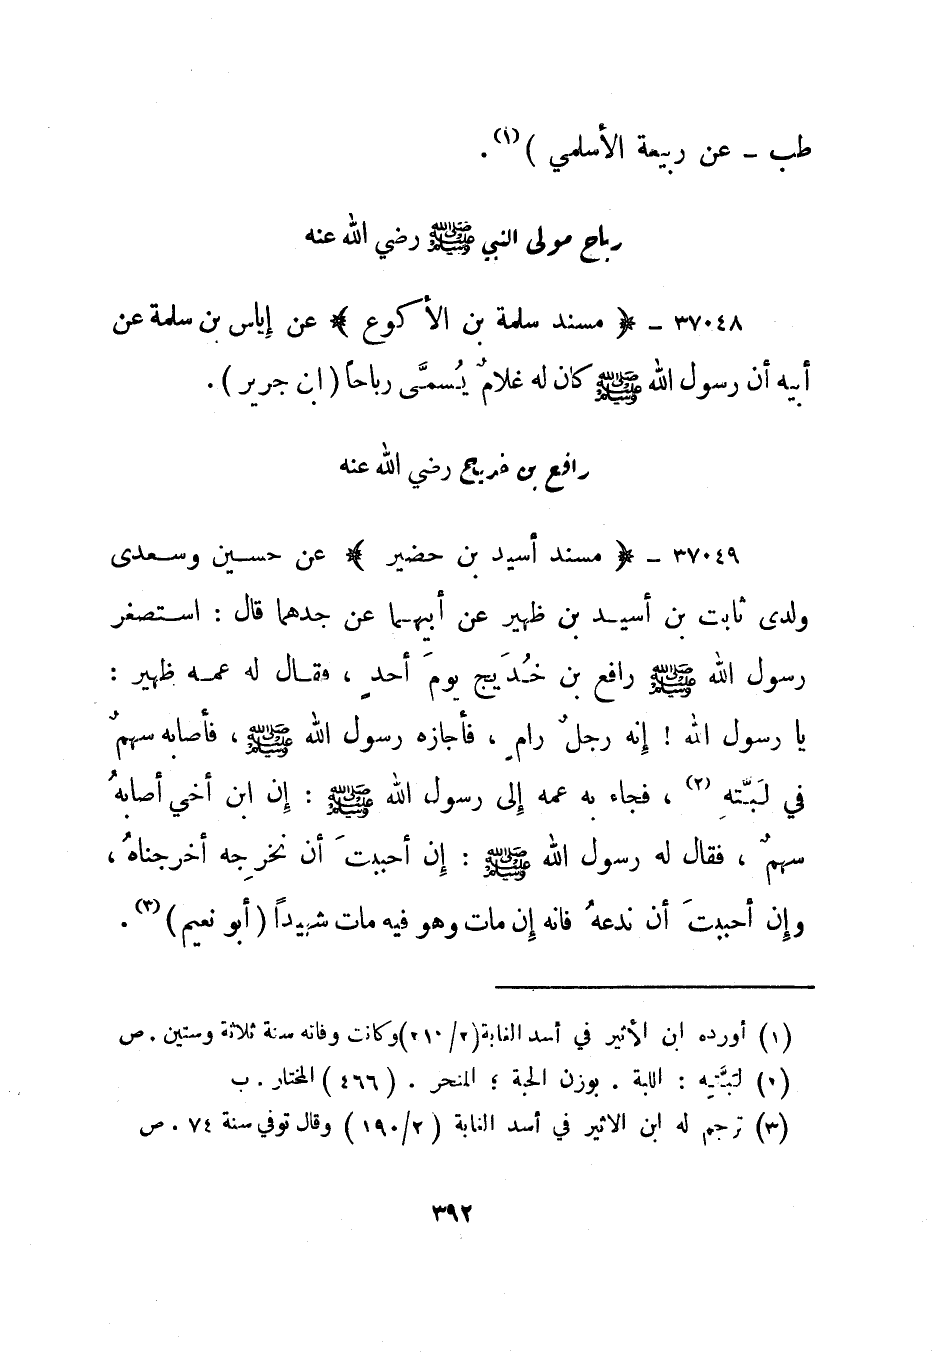 طب ـ عن ربيعة الأسلمي )(١).
رباح مولى النبي ﷺ رضي الله عنه
٣٧٠٤٨ ـ ﴿ مسند سلمة بن الأكوع ﴾ عن إياس بن سلمة عن
أبيه أن رسول الله ﷺ كان له غلامٌ يُسمَّى رباحاً ( ابن جرير ) .
رافع بن خديج رضي الله عنه
٣٧٠٤٩ ـ ﴿ مسند أسيد بن حضير ﴾ عن حسين وسعدى
ولدى ثابت بن أسيد بن ظهير عن أبيهما عن جدهما قال : استصغر
رسول الله ﷺ رافع بن خُدَيج يومَ أحدٍ ، فقال له عمه ظهير :
يا رسول الله ! إنه رجلٌ رامٍ ، فأجازه رسول الله ﷺ ، فأصابه سهمٌ
في لَبَّتهِ (٢) ، فجاء به عمه إلى رسول الله ﷺ : إن ابن أخي أصابهُ
سهمٌ ، فقال له رسول الله ﷺ : إن أحببتَ أن نخرِجه أخرجناهُ ،
وإن أحببتَ أن ندعهُ فانه إن مات وهو فيه مات شهيداً ( أبو نعيم )(٣) .
(١) أورده ابن الأثير في أسد الغابة(٢١٠/٢)وكانت وفاته سنة ثلاثة وستين . ص
(٢) لَبَّتِهِ : اللبة . بوزن الحبة ؛ المنحر . ( ٤٦٦ ) المختار . ب
(٣) ترجم له ابن الاثير في أسد الغابة ( ١٩٠/٢ ) وقال توفي سنة ٧٤ . ص
٣٩٢